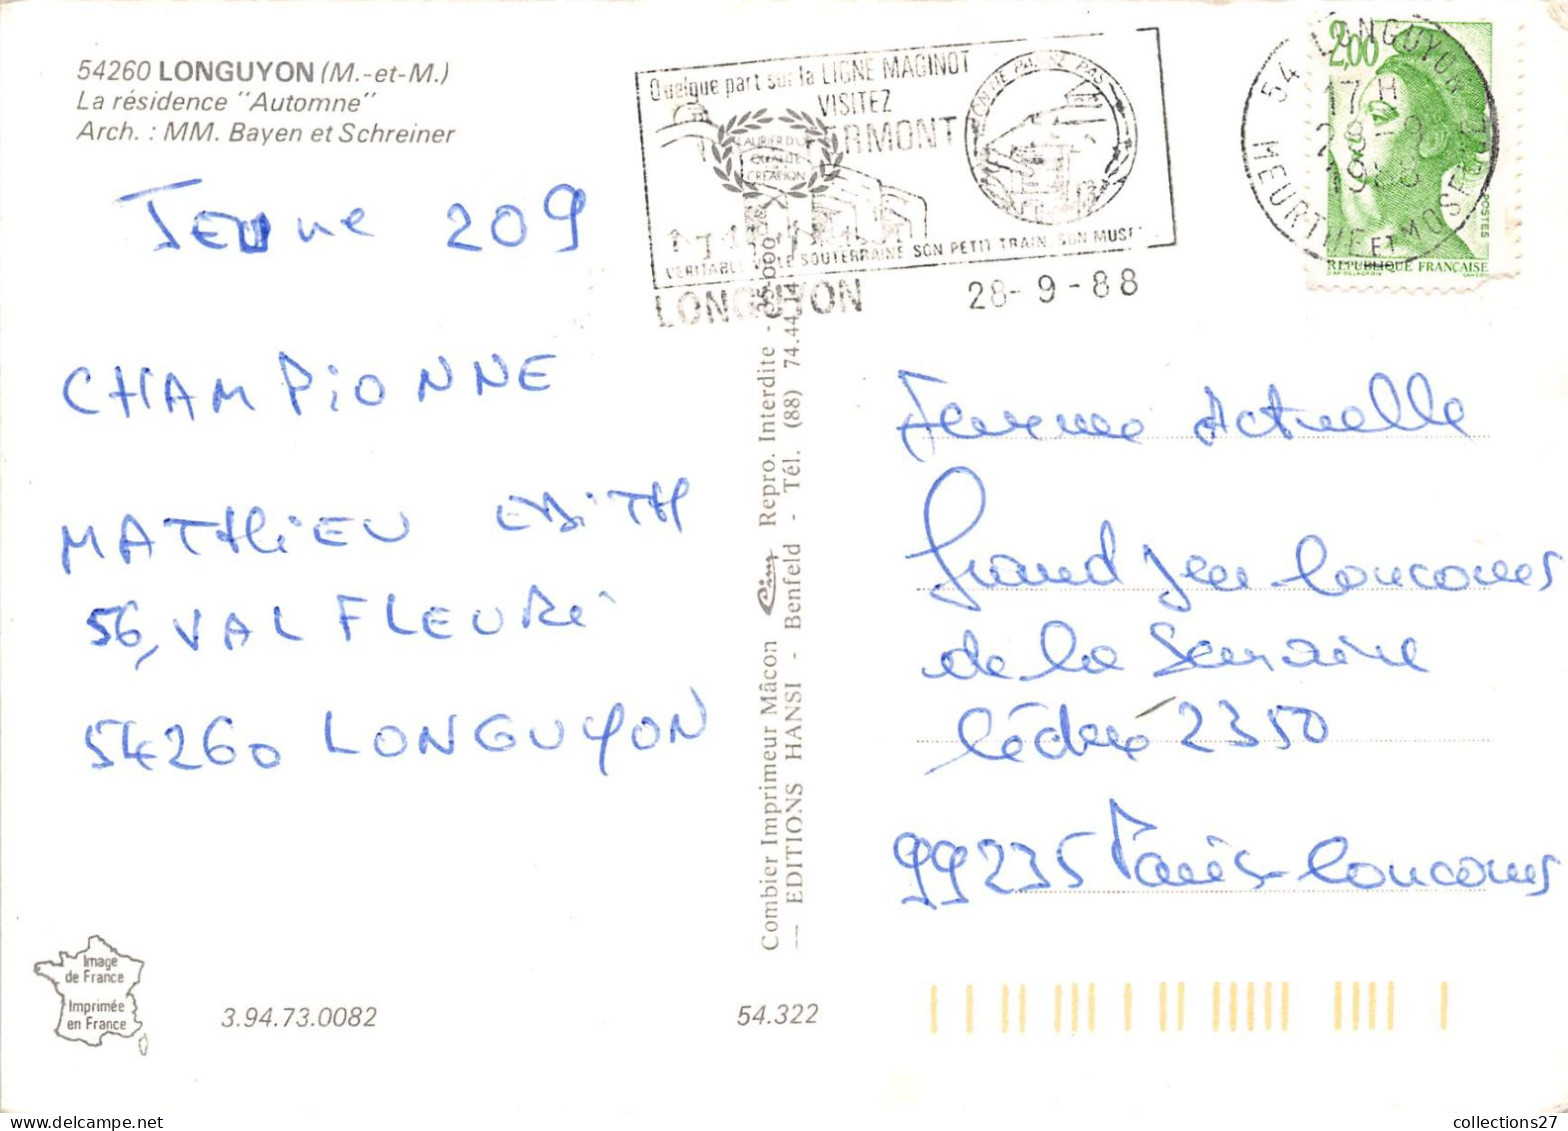 54260 LONGUYON (M.-et-M.)
La résidence "Automne"
Arch. : MM. Bayen et Schreiner
Quelque part sur la LIGNE MAGINOT
VISITEZ
FERMONT
ON NE PASSE PAS
LAURIER D'OR
QUALITÉ
CREATION
VERITABLE VILLE SOUTERRAINE SON PETIT TRAIN SON MUSEE
LONGUYON
28-9-88
54 LONGUYON
17 H
28-9
1988
MEURTHE ET MOSELLE
2,00
POSTES
REPUBLIQUE FRANÇAISE
Jeune 209
CHAMPIONNE
MATHIEU EDITH
56, VAL FLEURi
54260 LONGUYON
Femme Actuelle
Grand Jeu Concours
de la Semaine
Cédex 2350
99235 Paris-Concours
Combier Imprimeur Mâcon Cim Repro. Interdite - 35-000
— EDITIONS HANSI - Benfeld - Tél. (88) 74.44.14
Image
de France
Imprimée
en France
3.94.73.0082
54.322
collections27